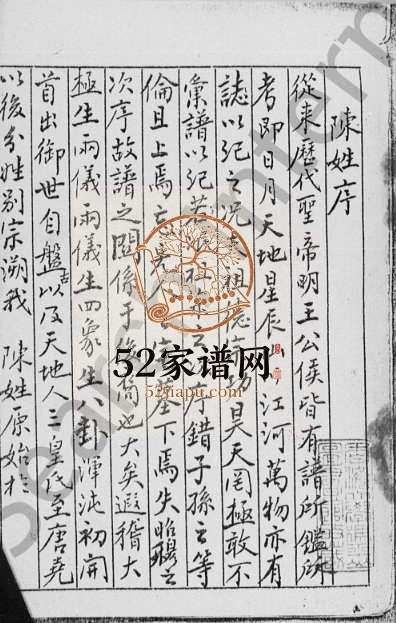 陳姓序
從来歷代聖帝明王公侯皆有譜所鑑所
考即日月天地星辰 江河萬物亦有
誌以记之况 祖德 功昊天罔極敢不
彙譜以纪若 祖 之 序錯子孫之等
倫且上焉 下焉失昭穆之
次序故譜之關係于後裔也大矣遐稽太
極生兩儀兩儀生四象生八卦渾沌初開
首出御世自盤古以及天地人三皇氏至唐堯
以後分姓别宗溯我 陳姓原始於
52家谱网
52jiapu.com